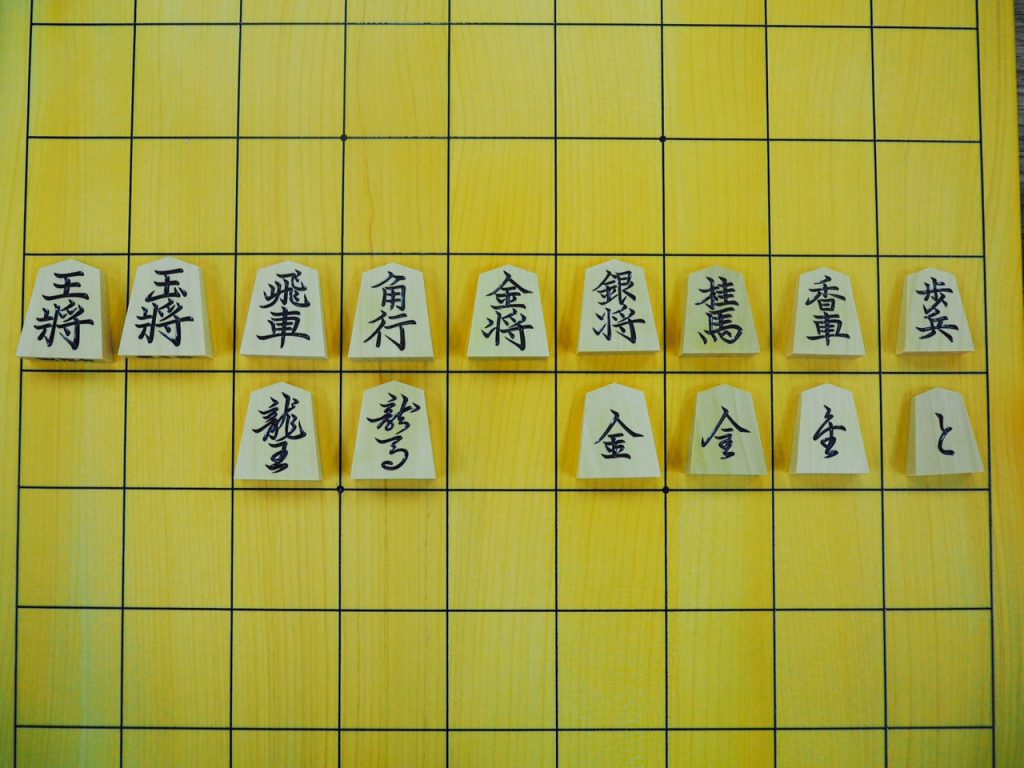 王將 玉將 飛車 角行 金将 銀将 桂馬 香車 歩兵
龍王 龍馬 金 全 金 と